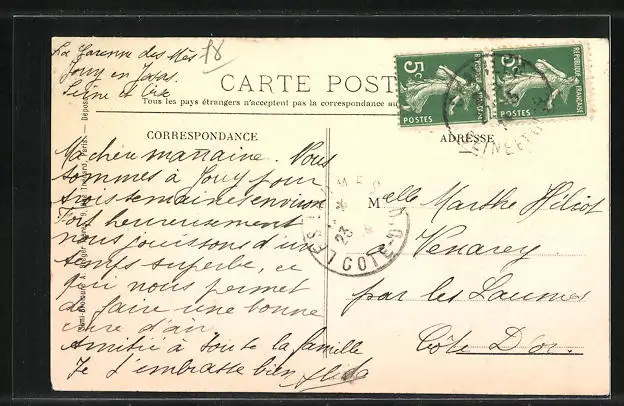 La Garenne des Mès
18
Jouy en Josas.
Seine et Oise
CARTE POST
Tous les pays étrangers n'acceptent pas la correspondance au
CORRESPONDANCE
ADRESSE
5c 5c
REPUBLIQUE FRANÇAISE
POSTES POSTES
Ma chère marraine. Nous
sommes à Jouy pour
trois semaines environ
fort heureusement
nous jouissons d'un
temps superbe, ce
qui nous permet
de faire une bonne
cure d'air
Amitié à toute la famille
Je t'embrasse bien
Melle Marthe Héliot
à Venarey
par les Laumes
Côte D'or.
LES
23
COTE-D'OR